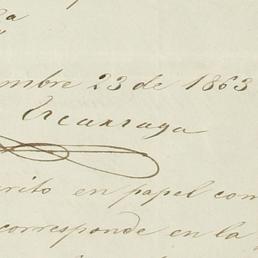 a
mbre 23 de 1863
Escarraga
rito en papel com
corresponde en la